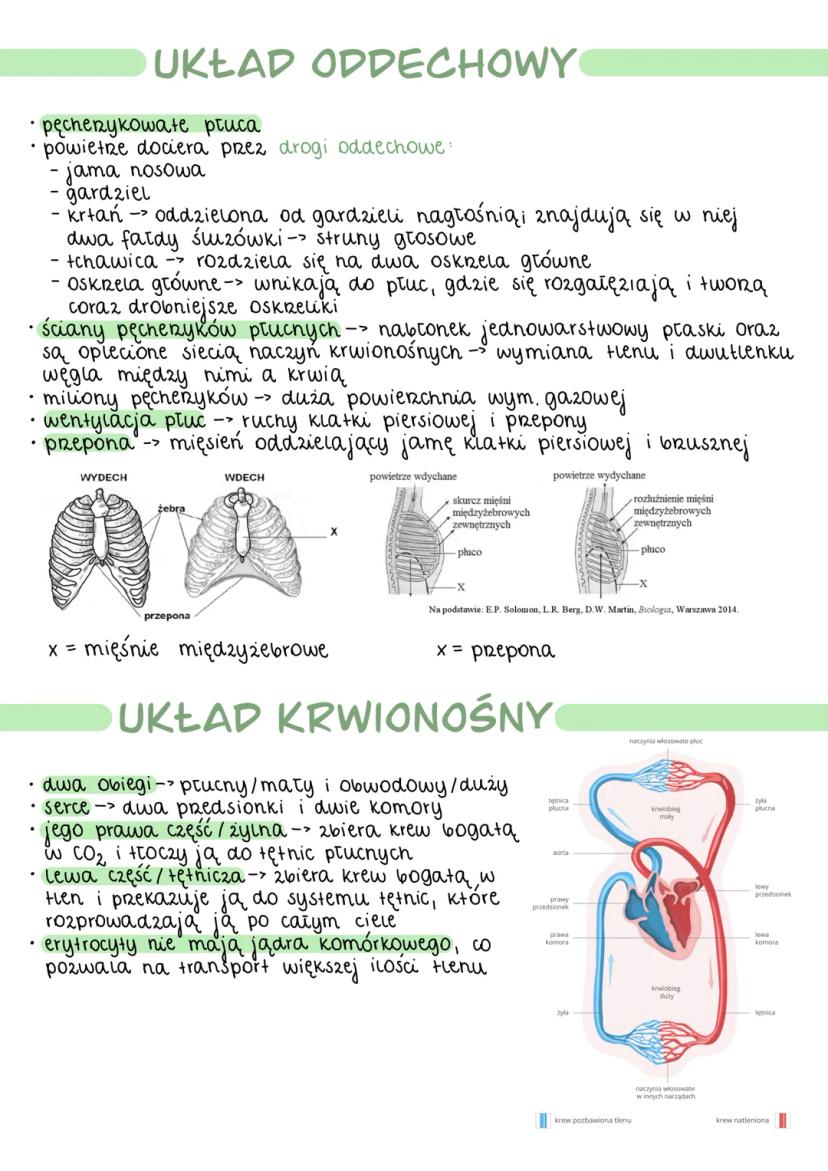 UKŁAD ODDECHOWY
· pęcherzykowate płuca
· powietrze dociera przez drogi oddechowe:
- jama nosowa
- gardziel
- krtań -> oddzielona od gardzieli nagłośnią i znajdują się w niej
dwa fałdy śluzówki -> struny głosowe
- tchawica -> rozdziela się na dwa oskrzela główne
- oskrzela główne -> wnikają do płuc, gdzie się rozgałęziają i tworzą
coraz drobniejsze oskrzeliki
· ściany pęcherzyków płucnych -> nabłonek jednowarstwowy płaski oraz
są oplecione siecią naczyń krwionośnych -> wymiana tlenu i dwutlenku
węgla między nimi a krwią
· miliony pęcherzyków -> duża powierzchnia wym. gazowej
· wentylacja płuc -> ruchy klatki piersiowej i przepony
· przepona -> mięsień oddzielający jamę klatki piersiowej i brzusznej
WYDECH WDECH
żebra
X
przepona
powietrze wdychane
skurcz mięśni
międzyżebrowych
zewnętrznych
płuco
X
powietrze wydychane
rozluźnienie mięśni
międzyżebrowych
zewnętrznych
płuco
X
Na podstawie: E.P. Solomon, L.R. Berg, D.W. Martin, Biologia, Warszawa 2014.
x = mięśnie międzyżebrowe
x = przepona
UKŁAD KRWIONOŚNY
· dwa obiegi -> płucny/mały i obwodowy/duży
· serce -> dwa przedsionki i dwie komory
· jego prawa część / żylna -> zbiera krew bogatą
w CO₂ i tłoczy ją do tętnic płucnych
· lewa część / tętnicza -> zbiera krew bogatą w
tlen i przekazuje ją do systemu tętnic, które
rozprowadzają ją po całym ciele
· erytrocyty nie mają jądra komórkowego, co
pozwala na transport większej ilości tlenu
naczynia włosowate płuc
tętnica
płucna
krwiobieg
mały
żyła
płucna
aorta
lewy
przedsionek
prawy
przedsionek
prawa
komora
lewa
komora
krwiobieg
duży
żyła
tętnica
naczynia włosowate
w innych narządach
krew pozbawiona tlenu
krew natleniona